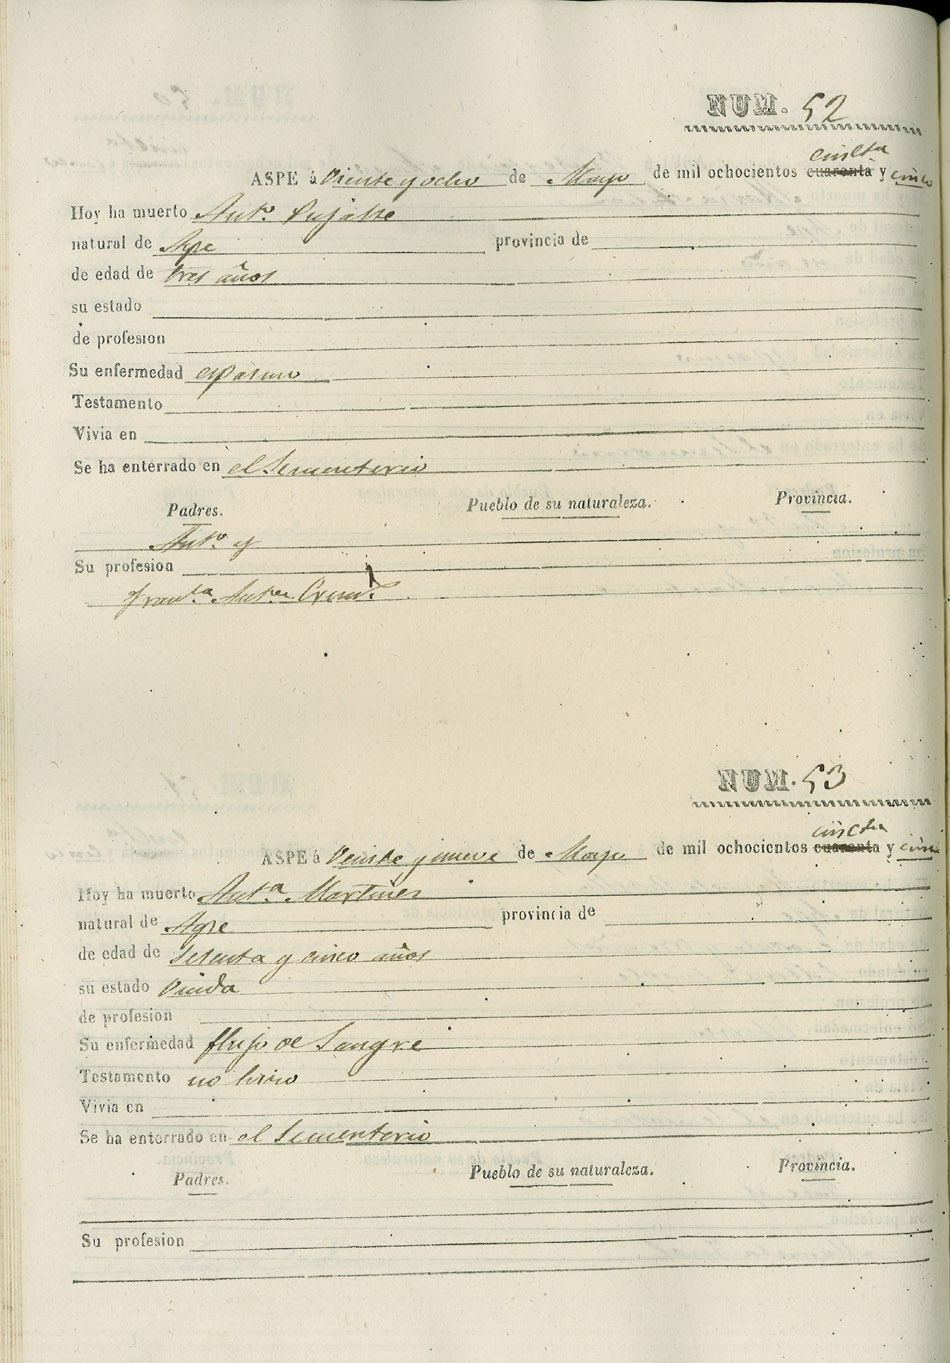 NUM. 52
cincta
ASPE á Veinte y ocho de Mayo de mil ochocientos cuarenta y cinco
Hoy ha muerto Antº Pujalte
natural de Aspe provincia de
de edad de tres años
su estado
de profesion
Su enfermedad espasmo
Testamento
Vivia en
Se ha enterrado en el Sementerio
Padres. Pueblo de su naturaleza. Provincia.
Antº y
Su profesion
Franca Antª
NUM. 53
cincta
ASPE á Veinte y nueve de Mayo de mil ochocientos cuarenta y cinco
Hoy ha muerto Antª Martines
natural de Aspe provincia de
de edad de setenta y cinco años
su estado Viuda
de profesion
Su enfermedad flujo de Sangre
Testamento no hiso
Vivia en
Se ha enterrado en el Sementerio
Padres. Pueblo de su naturaleza. Provincia.
Su profesion